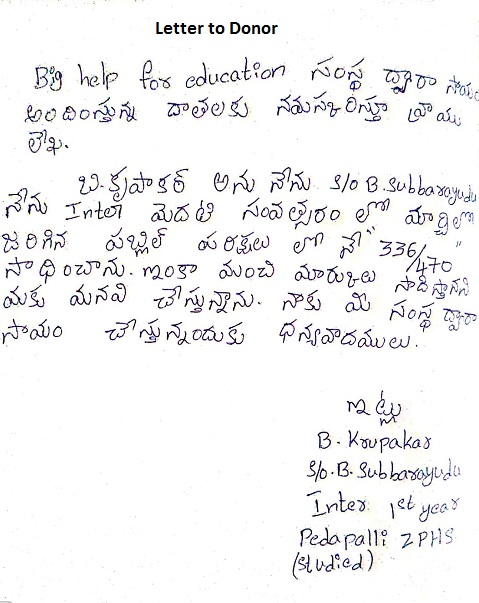 Letter to Donor
Big help for education సంస్థ ద్వారా సాయం
అందిస్తున్న దాతలకు నమస్కరిస్తూ వ్రాయు
లేఖ.
బి.కృపాకర్ అను నేను S/o B.Subbarayudu
నేను Interలో మెదటి సంవత్సరం లో మార్చిలో
జరిగిన పబ్లిల్ పరిక్షలు లో నే "336/470"
సాధించాను. ఇంకా మంచి మార్కులు సాదిస్తానని
మకు మనవి చేస్తున్నాను. నాకు మి సంస్థ ద్వారా
సాయం చేస్తున్నందుకు ధన్యవాదములు.
ఇట్లు
B. Krupakar
S/o. B. Subbarayudu
Inter 1st year
Pedapalli ZPHS
(studied)